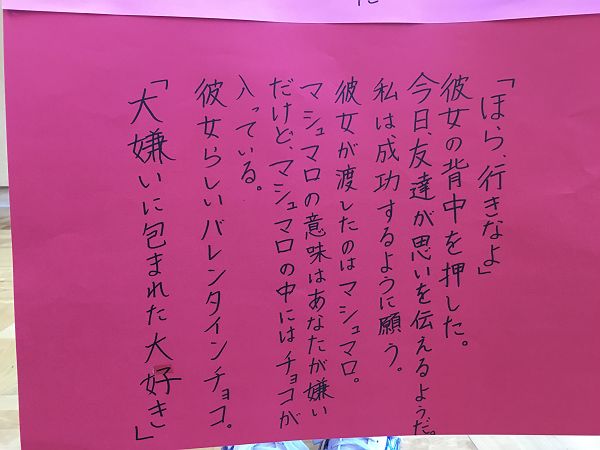 「ほら、行きなよ」
彼女の背中を押した。
今日、友達が思いを伝えるようだ。
私は、成功するように願う。
彼女が渡したのはマシュマロ。
マシュマロの意味はあなたが嫌い
だけど、マシュマロの中にはチョコが
入っている。
彼女らしいバレンタインチョコ。
「大嫌いに包まれた大好き」